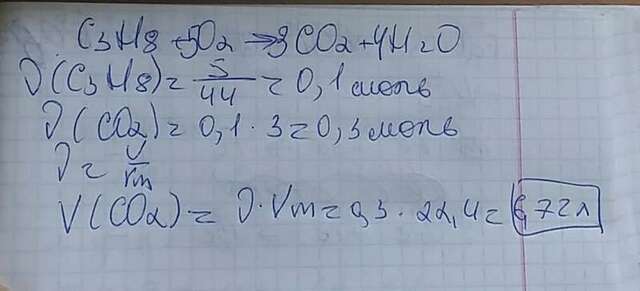 C3H8 + 5O2 → 3CO2 + 4H2O
ν(C3H8) = 5/44 = 0,1 моль
ν(CO2) = 0,1 · 3 = 0,3 моль
ν = V/Vm
V(CO2) = ν · Vm = 0,3 · 22,4 = 6,72 л